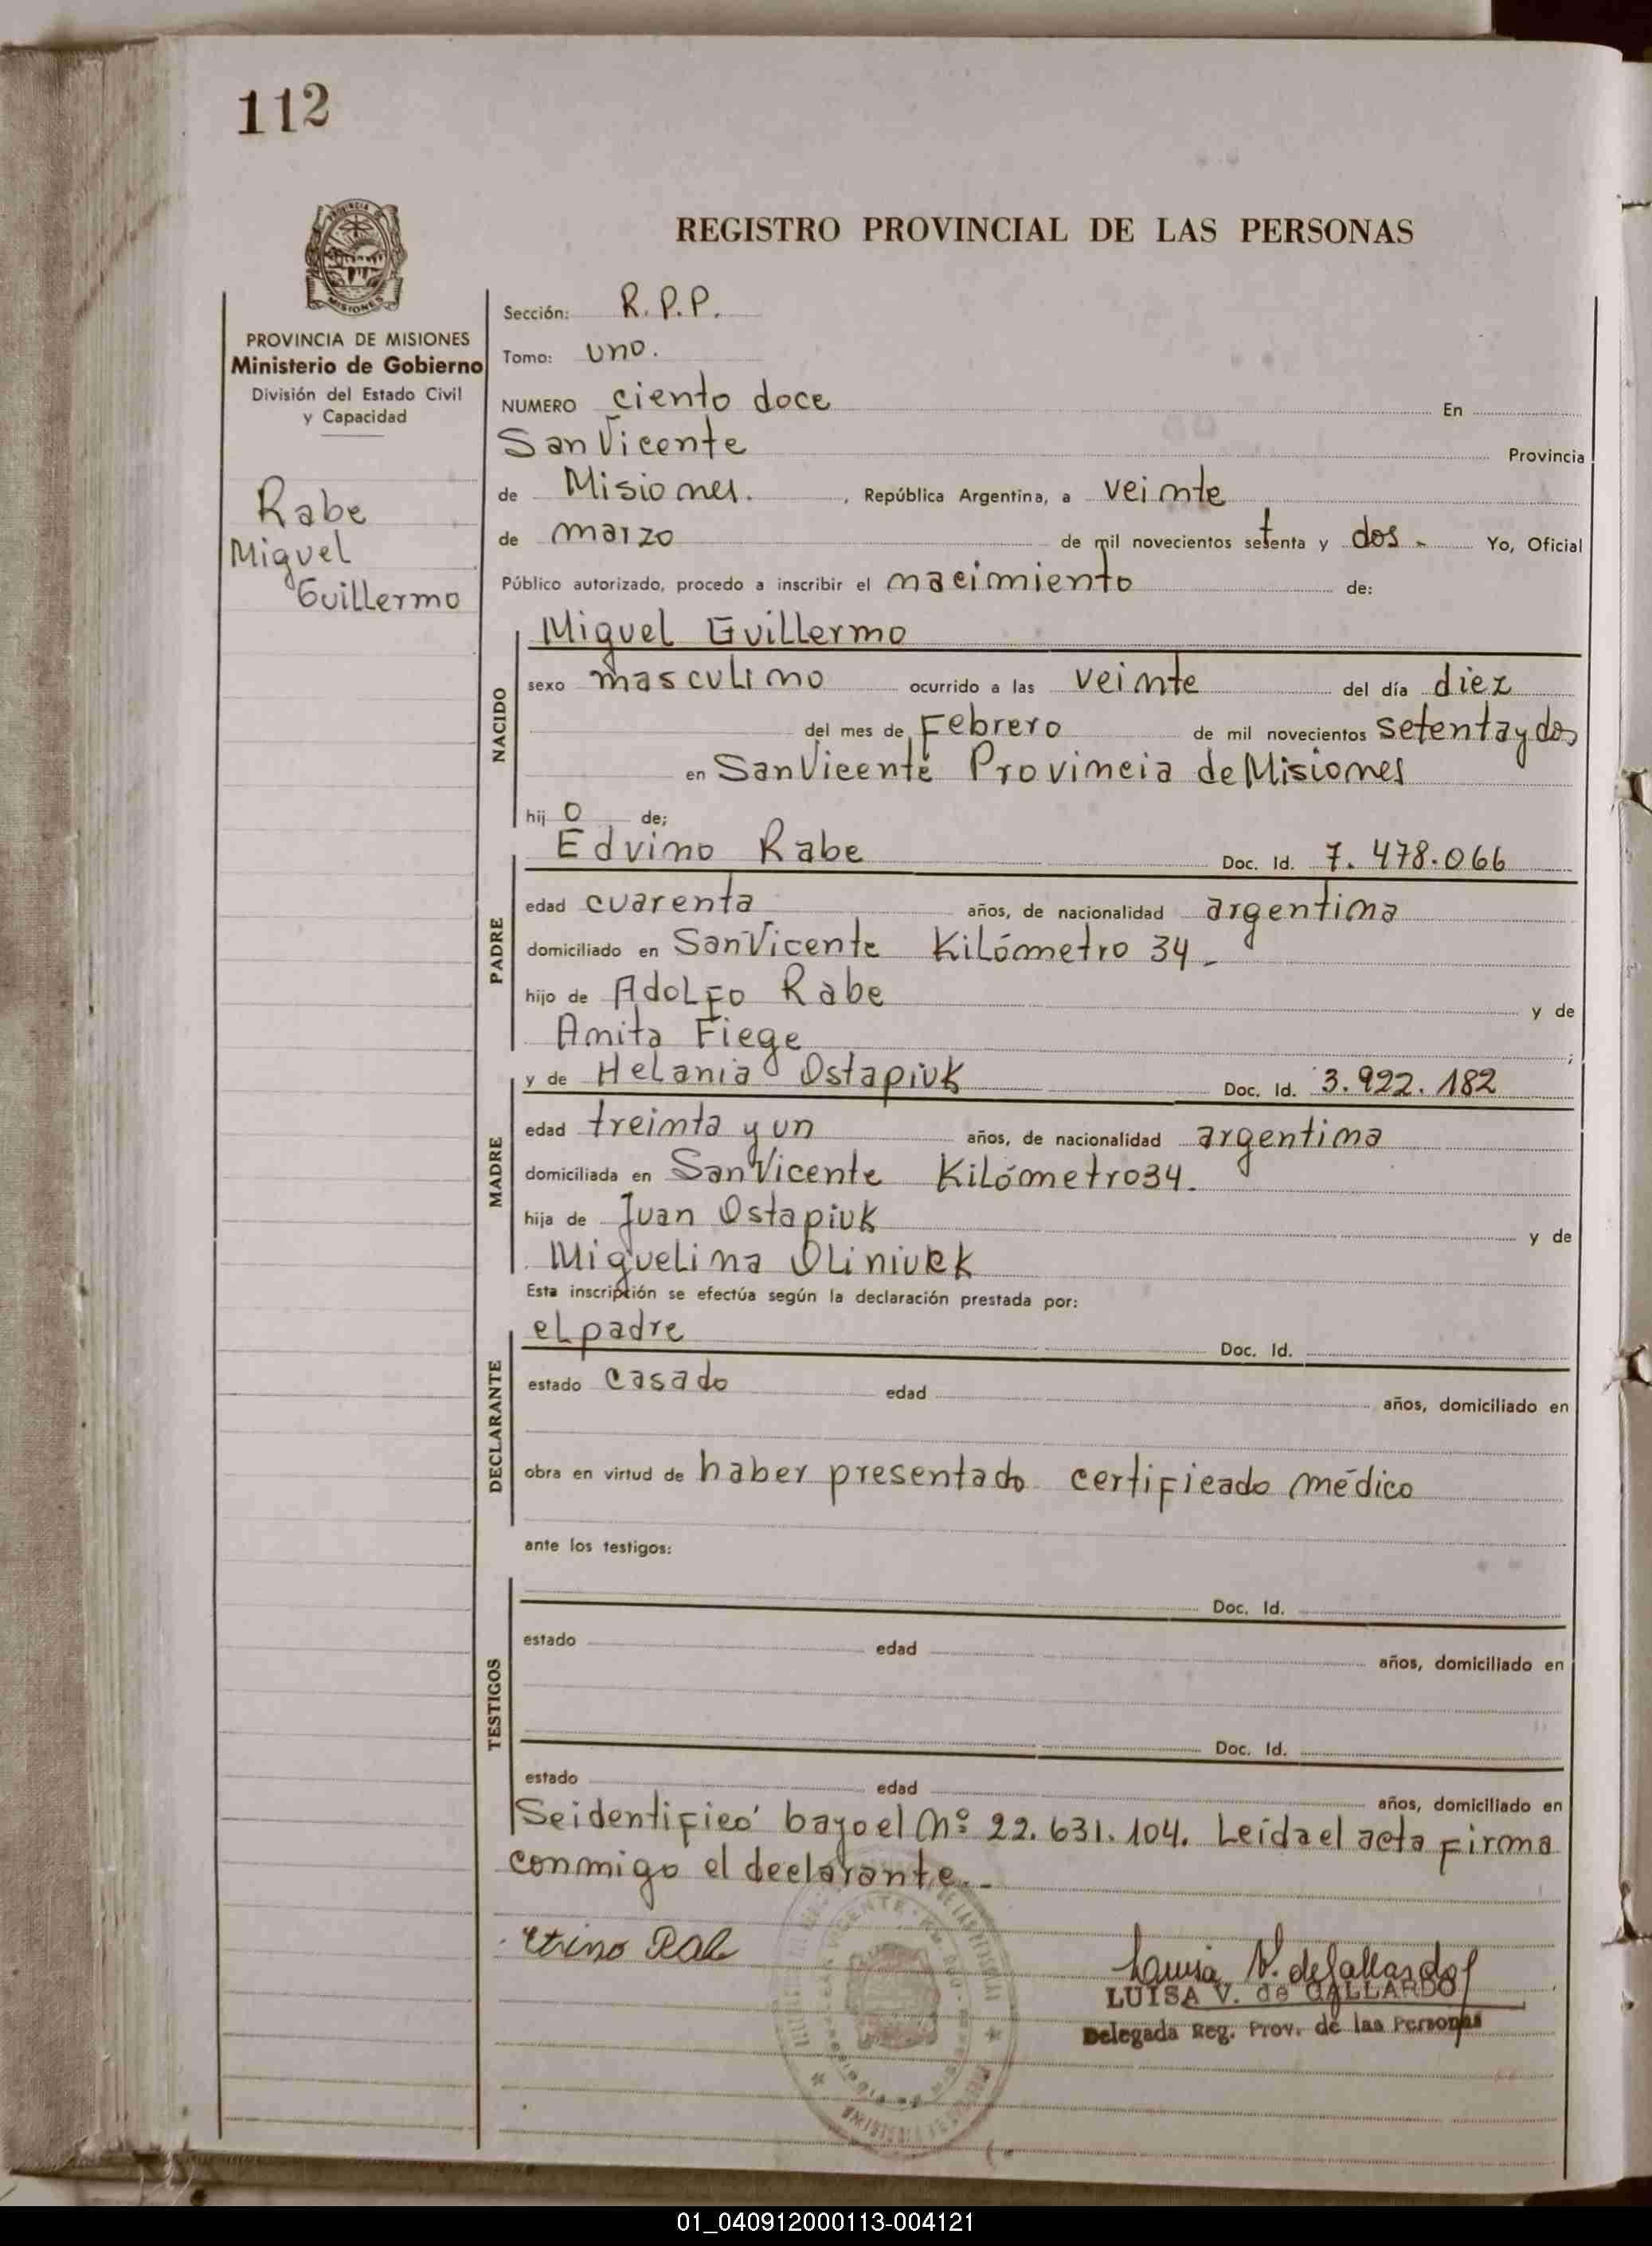 112
REGISTRO PROVINCIAL DE LAS PERSONAS
PROVINCIA DE MISIONES
Ministerio de Gobierno
División del Estado Civil
y Capacidad
Rabe
Miguel
Guillermo
Sección: R.P.P.
Tomo: uno.
NUMERO ciento doce En
San Vicente Provincia
de Misiones. , República Argentina, a veinte
de marzo de mil novecientos setenta y dos. Yo, Oficial
Público autorizado, procedo a inscribir el nacimiento de:
NACIDO
Miguel Guillermo
sexo masculino ocurrido a las veinte del día diez
del mes de Febrero de mil novecientos setenta y dos
en San Vicente Provincia de Misiones
hij o de;
PADRE
Edvino Rabe Doc. Id. 7.478.066
edad cuarenta años, de nacionalidad argentina
domiciliado en San Vicente Kilómetro 34.
hijo de Adolfo Rabe y de
Anita Fiege ;
MADRE
y de Helania Ostapiuk Doc. Id. 3.922.182
edad treinta y un años, de nacionalidad argentina
domiciliada en San Vicente Kilómetro 34.
hija de Juan Ostapiuk y de
Miguelina
Esta inscripción se efectúa según la declaración prestada por:
DECLARANTE
el padre Doc. Id.
estado casado edad años, domiciliado en
obra en virtud de haber presentado certificado médico
ante los testigos:
TESTIGOS
Doc. Id.
estado edad años, domiciliado en
Doc. Id.
estado edad años, domiciliado en
Se identificó bajo el Nº 22.631.104. Leída el acta firma
conmigo el declarante.-
Luisa V. de Gallardo
LUISA V. de GALLARDO
Delegada Reg. Prov. de las Personas
01_040912000113-004121